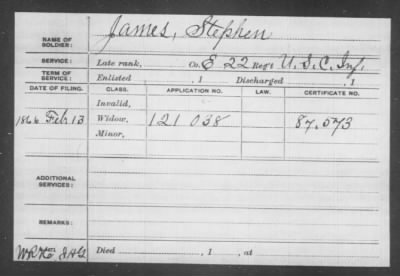 NAME OF SOLDIER: James, Stephen
SERVICE: Late rank, Co. E 22 Reg't U.S.C. Inf.
TERM OF SERVICE: Enlisted , 1 Discharged , 1
DATE OF FILING. CLASS. APPLICATION NO. LAW. CERTIFICATE NO.
Invalid,
1866 Feb 13 Widow, 121 038 87,573
Minor,
ADDITIONAL SERVICES:
REMARKS:
Died , 1 , at